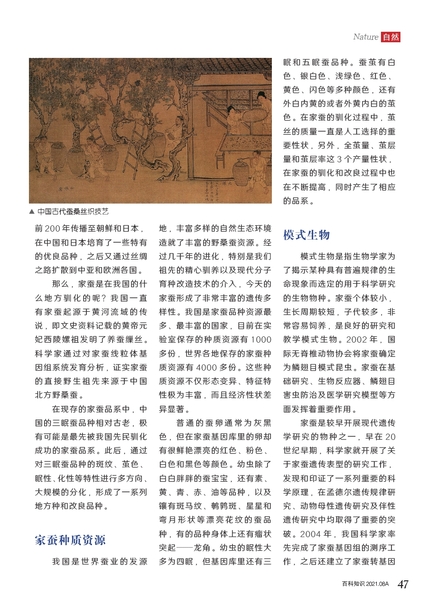 Nature 自然
▲ 中国古代蚕桑丝织技艺
前 200 年传播至朝鲜和日本，
在中国和日本培育了一些特有
的优良品种，之后又通过丝绸
之路扩散到中亚和欧洲各国。
那么，家蚕是在我国的什
么地方驯化的呢？我国一直
有家蚕起源于黄河流域的传
说，即文史资料记载的黄帝元
妃西陵嫘祖发明了养蚕缫丝。
科学家通过对家蚕线粒体基
因组系统发育分析，证实家蚕
的直接野生祖先来源于中国
北方野桑蚕。
在现存的家蚕品系中，中
国的三眠蚕品种相对古老，极
有可能是最先被我国先民驯化
成功的家蚕品系。此后，通过
对三眠蚕品种的斑纹、茧色、
眠性、化性等特性进行多方向、
大规模的分化，形成了一系列
地方种和改良品种。
家蚕种质资源
我国是世界蚕业的发源
地，丰富多样的自然生态环境
造就了丰富的野桑蚕资源。经
过几千年的进化，特别是我们
祖先的精心驯养以及现代分子
育种改造技术的介入，今天的
家蚕形成了非常丰富的遗传多
样性。我国是家蚕品种资源最
多、最丰富的国家，目前在实
验室保存的种质资源有 1000
多份，世界各地保存的家蚕种
质资源有 4000 多份。这些种
质资源不仅形态变异、特征特
性极为丰富，而且经济性状差
异显著。
普通的蚕卵通常为灰黑
色，但在家蚕基因库里的卵却
有很鲜艳漂亮的红色、粉色、
白色和黑色等颜色。幼虫除了
白白胖胖的蚕宝宝，还有素、
黄、青、赤、油等品种，以及
镶有斑马纹、鹌鹑斑、星星和
弯月形状等漂亮花纹的蚕品
种，有的品种身体上还有瘤状
突起——龙角。幼虫的眠性大
多为四眠，但基因库里还有三
眠和五眠蚕品种。蚕茧有白
色、银白色、浅绿色、红色、
黄色、闪色等多种颜色，还有
外白内黄的或者外黄内白的茧
色。在家蚕的驯化过程中，茧
丝的质量一直是人工选择的重
要性状，另外，全茧量、茧层
量和茧层率这 3 个产量性状，
在家蚕的驯化和改良过程中也
在不断提高，同时产生了相应
的品系。
模式生物
模式生物是指生物学家为
了揭示某种具有普遍规律的生
命现象而选定的用于科学研究
的生物物种。家蚕个体较小，
生长周期较短，子代较多，非
常容易饲养，是良好的研究和
教学模式生物。2002 年，国
际无脊椎动物协会将家蚕确定
为鳞翅目模式昆虫。家蚕在基
础研究、生物反应器、鳞翅目
害虫防治及医学研究模型等方
面发挥着重要作用。
家蚕是较早开展现代遗传
学研究的物种之一，早在 20
世纪早期，科学家就开展了关
于家蚕遗传表型的研究工作，
发现和印证了一系列重要的科
学原理，在孟德尔遗传规律研
究、动物母性遗传研究及伴性
遗传研究中均取得了重要的突
破。2004 年，我国科学家率
先完成了家蚕基因组的测序工
作，之后还建立了家蚕转基因
百科知识 2021.08A 47